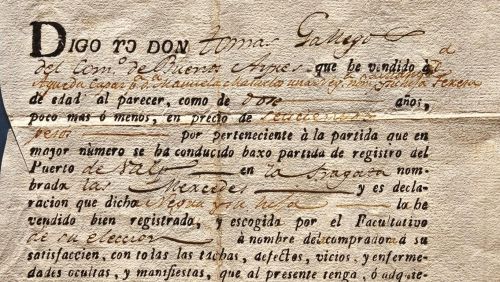 DIGO YO DON Tomas Gallego
del Com.º de Buenos Ayres que he vendido à
Theresa
de edad al parecer, como de dose años,
poco mas ó menos, en precio de seiscientos
pesos por perteneciente à la partida que en
mayor nùmero se ha conducido baxo partida de registro del
Puerto de Valp en la Fragata nom-
brada las Mercedes y es decla-
racion que dicha Negra y su hesa la he
vendido bien registrada, y escogida por el Facultativo
de su eleccion à nombre del comprador à su
satisfaccien, con todas las tachas, defectos, vicios, y enferme-
dades ocultas, y manifiestas, que al presente tenga, ó adquie-